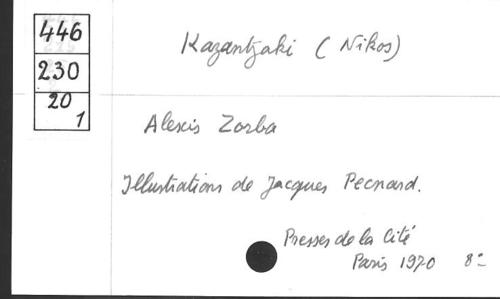 446
230
20
1
Kazantzaki (Nikos)
Alexis Zorba
Illustrations de Jacques Pecnard.
Presses de la Cité
Paris 1970 8°